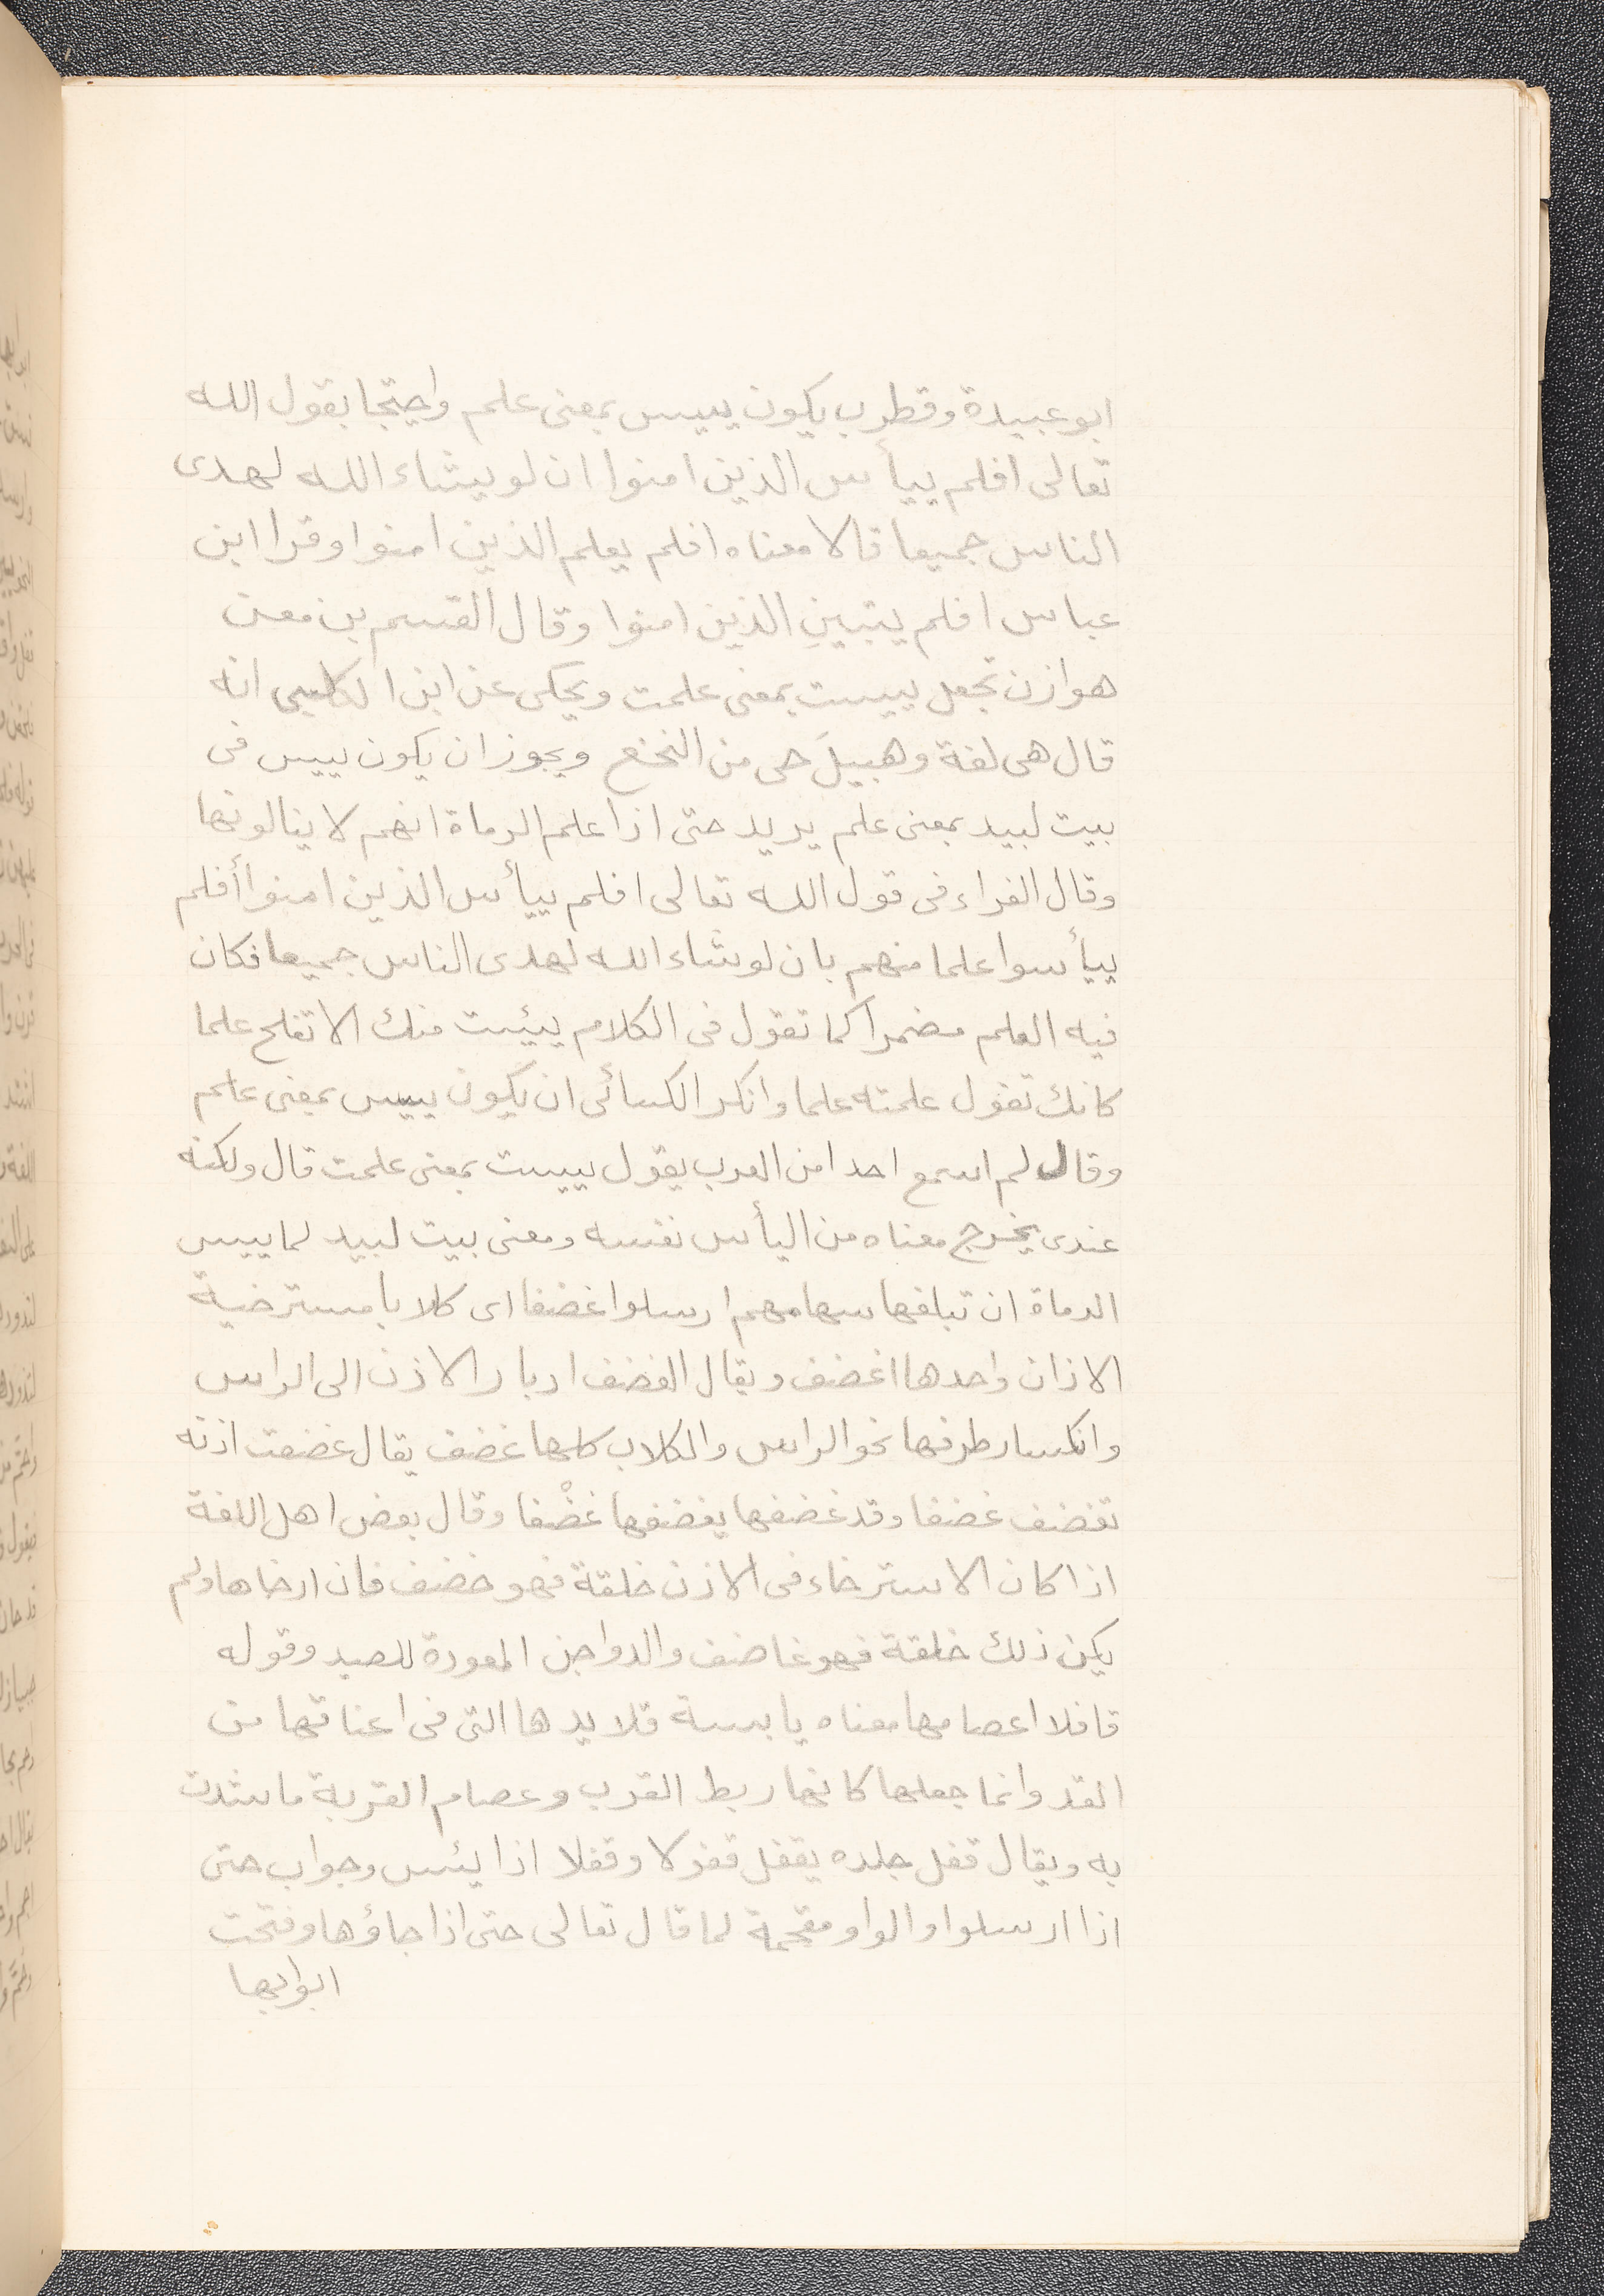 ابو عبيدة وقطرب يكون ييس بمعنى علم واحتجا بقول الله
تعالى افلم ييأس الذين امنوا ان لو يشاء الله لهدى
الناس جميعا قالا معناه افلم يعلم الذين امنوا وقرا ابن
عباس افلم يتبينِ الذين امنوا وقال القسم بن معن
هوازن تجعل ييست بمعنى علمت ويحكى عن ابن الكلبى انه
قال هى لغة وهبيلَ حى من النخع ويجوز ان يكون ييس فى
بيت لبيد بمعنى علم يريد حتى اذا علم الرماة انهم لا ينالونها
وقال الفراء فى قول الله تعالى افلم ييأس الذين امنوا أفلم
ييأسوا علما منهم بان لو شاء الله لهدى الناس جميعا فكان
فيه العلم مضمرا كما تقول فى الكلام ييئست منك الا تفلح علما
كانك تقول علمته علما وانكر الكسائى ان يكون ييس بمعنى علم
وقال لم اسمع احدا من العرب يقول ييست بمعنى علمت قال ولكنه
عندى يخرج معناه من اليأس نفسه ومعنى بيت لبيد لما ييس
الرماة ان تبلغها سهامهم ارسلوا غضفا اى كلابا مسترخية
الاذان واحدها اغضف ويقال الغضف ادبار الاذن الى الراس
وانكسار طرفها نحو الراس والكلاب كلها غضف يقال غضفت اذنه
تغضف غضفا وقد غضفها يغضفها غضْفا وقال بعض اهل اللغة
اذا كان الاسترخاء فى الاذن خلقة فهو خضف فان ارخاها ولم
يكن ذلك خلقة فهو غاضف والدواجن المعودة للصيد وقوله
قافلا اعصامها معناه يابسة قلايدها التى فى اعناقها من
القد وانما جعلها كانها ربط القرب وعصام القربة ما شدت
به ويقال قفل جلده يقفل قفولا وقفلا اذا يئس وجواب حتى
اذا ارسلوا والواو مقحمة لما قال تعالى حتى اذا جاؤها وفتحت
ابوابها